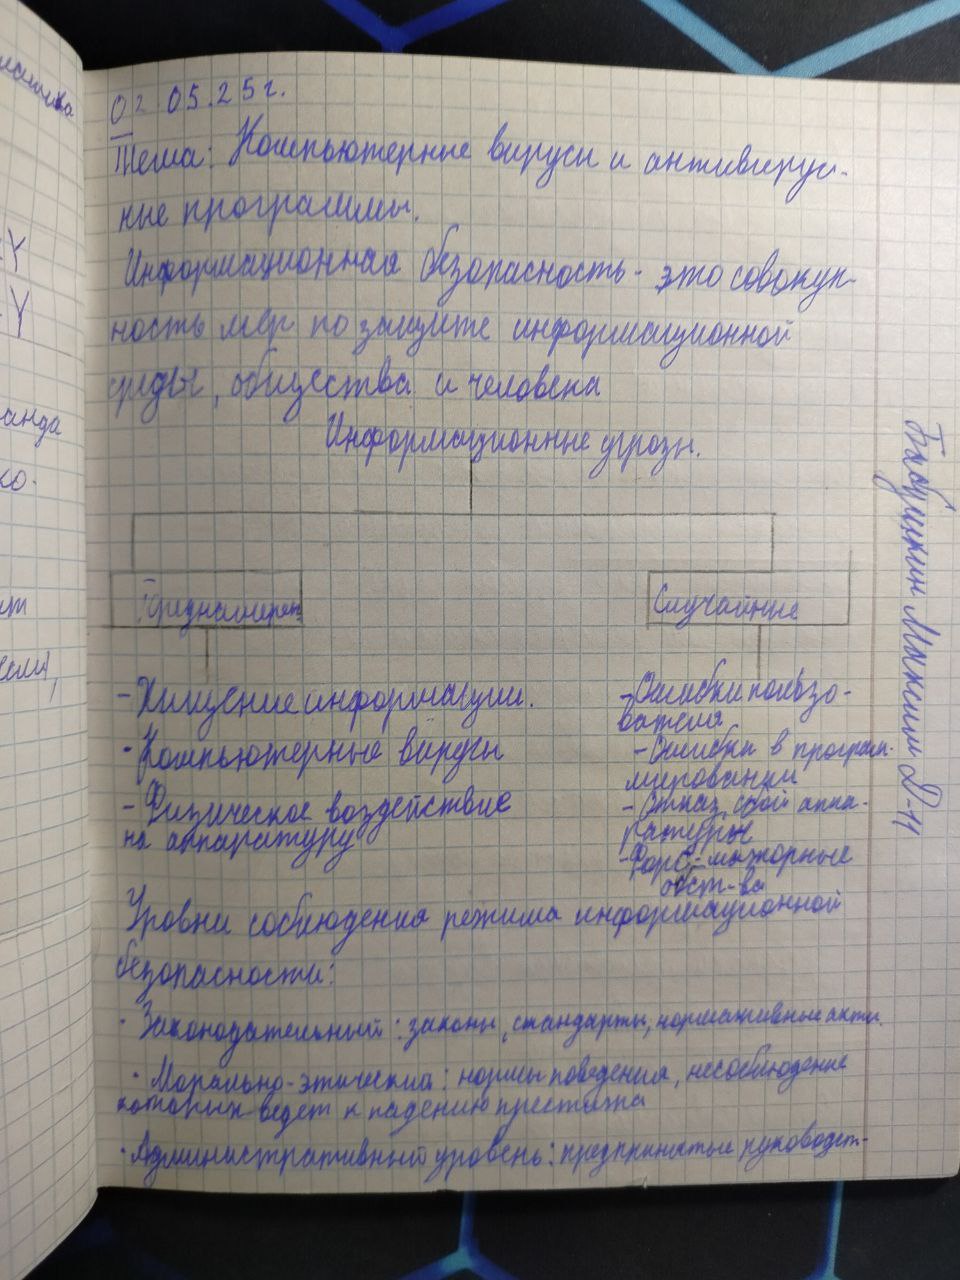 02 05.25г.
Тема: Компьютерные вирусы и антивирус-
ные программы.
Информационная безопасность - это совокуп-
ность мер по защите информационной
среды, общества и человека
Информационные угрозы.
Преднамерен
Случайные
- Хищение информации.
- Компьютерные вирусы
- Физическое воздействие
на аппаратуру
- Ошибки пользо-
вателя
- Ошибки в програм-
мировании
- Отказ, сбой аппа-
ратуры
- Форс-мажорные
обст-ва
Уровни соблюдения режима информационной
безопасности:
· Законодательный: законы, стандарты, нормативные акты.
· Морально-этический: нормы поведения, несоблюдение
которых ведет к падению престижа
· Административный уровень: предпринятые руководст-
Максим Д-11
анда
ко.